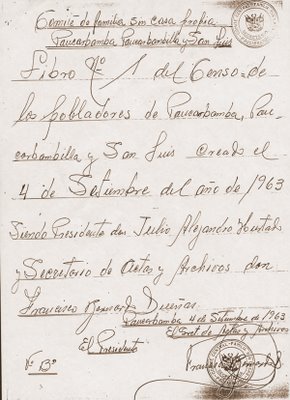 Comité de familia sin casa propia
Paucarbamba Paucarbambilla y San Luis
Libro Nº 1 del Censo de
los pobladores de Paucarbamba, Pau-
carbambilla y San Luis creado el
4 de Setumbre del año de 1963
Siendo Presidente don Julio Alejandro Hurtado
y Secretario de actas y Archivos don
Francisco
Paucarbamba 4 de Setumbre de 1963
El Secret de Actas y Archivos
El Presidente
Vº Bº